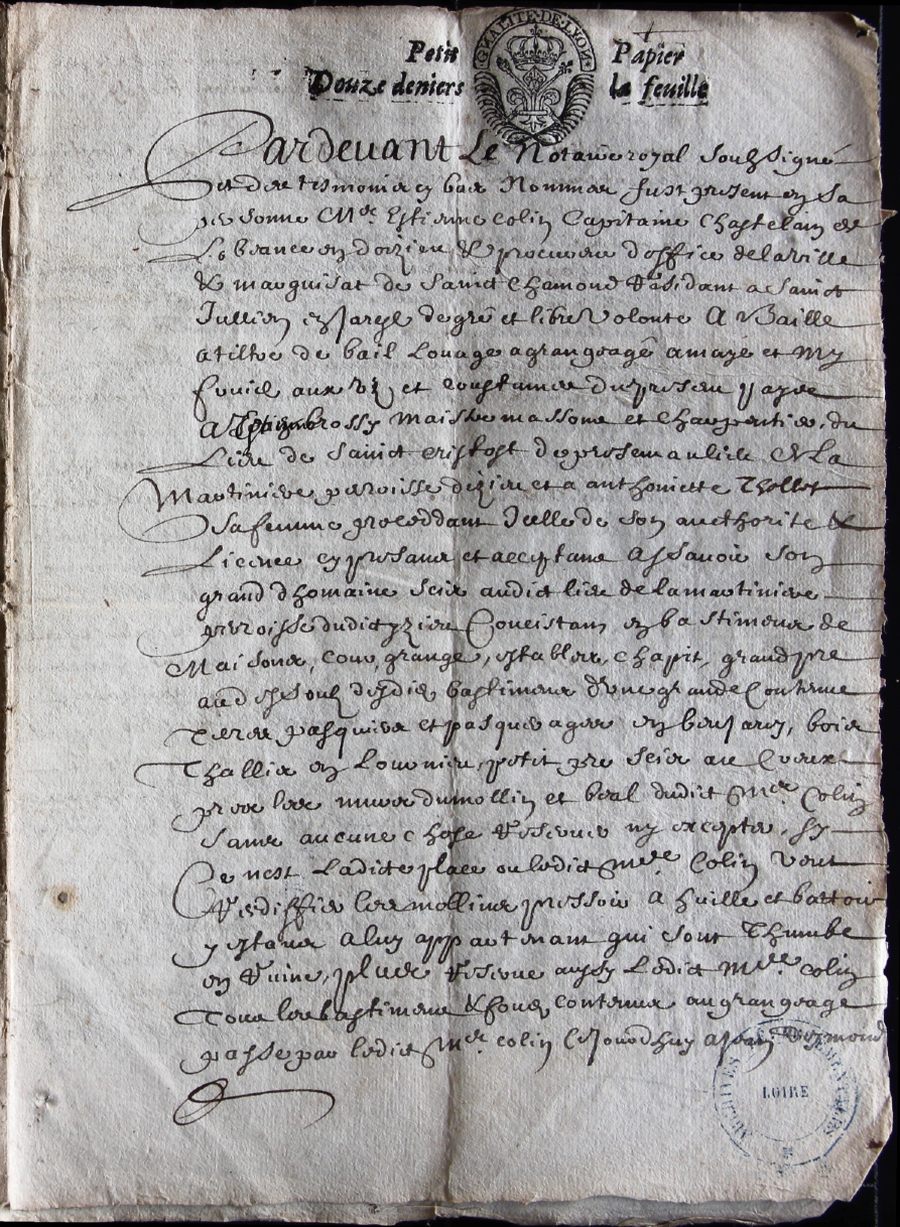 GNALITE·DE·LYON
Petit Papier
Douze deniers la feuille
Pardevant Le Notaire royal soubsigné
et des tesmoings bas Nommes fust present en sa
personne Mre Estienne Colin Capitaine Chastelain de
La en doizieu & procureur doffice delaville
& marquisat de Sainct Chamond Residant a Sainct
Jullien en Jarez de gré et libre Volonté A Baille
a tiltre de bail Louage a grangeage a moyé et My
fruict aux us et coustumes du present pays
A brossy Maistre masson et Charpentier, du
Lieu de Sainct de La
Martiniere parroisse dizieu et a anthoniette Thollot
sa femme proceddant Icelle de son authorité &
Licence cy presans et acceptans Assavoir son
grand dhomaine scis audict lieu de lamartiniere
parroisse dudict yzieu Concistant en bastimens de
Maisons, cour, grange, estables, chapit, grand pré
au dessoubz desdis bastimens dune grande Contenue
Terres pasquiers et pasqueages en bois
Thallis en petit pré scis au Creux
pres les murs dumollin et beal dudict Mre Colin
sans aucune chose Reserver ny excepter, sy
Ce nest Ladicte place ou ledict Mre Colin veut
Rediffier les mollins pressoir a huille et battoir
y estans a luy appartenant qui sont Thumbe
en Ruine, plus Reserve aussy Ledict Mre Colin
Tous les bastimens & fondz contenus au grangeage
passe par ledict Mre Colin Cejourdhuy a
ARCHIVES DEPARTEMENTALES
LOIRE